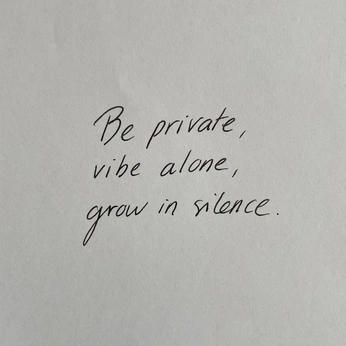 Be private,
vibe alone,
grow in silence.